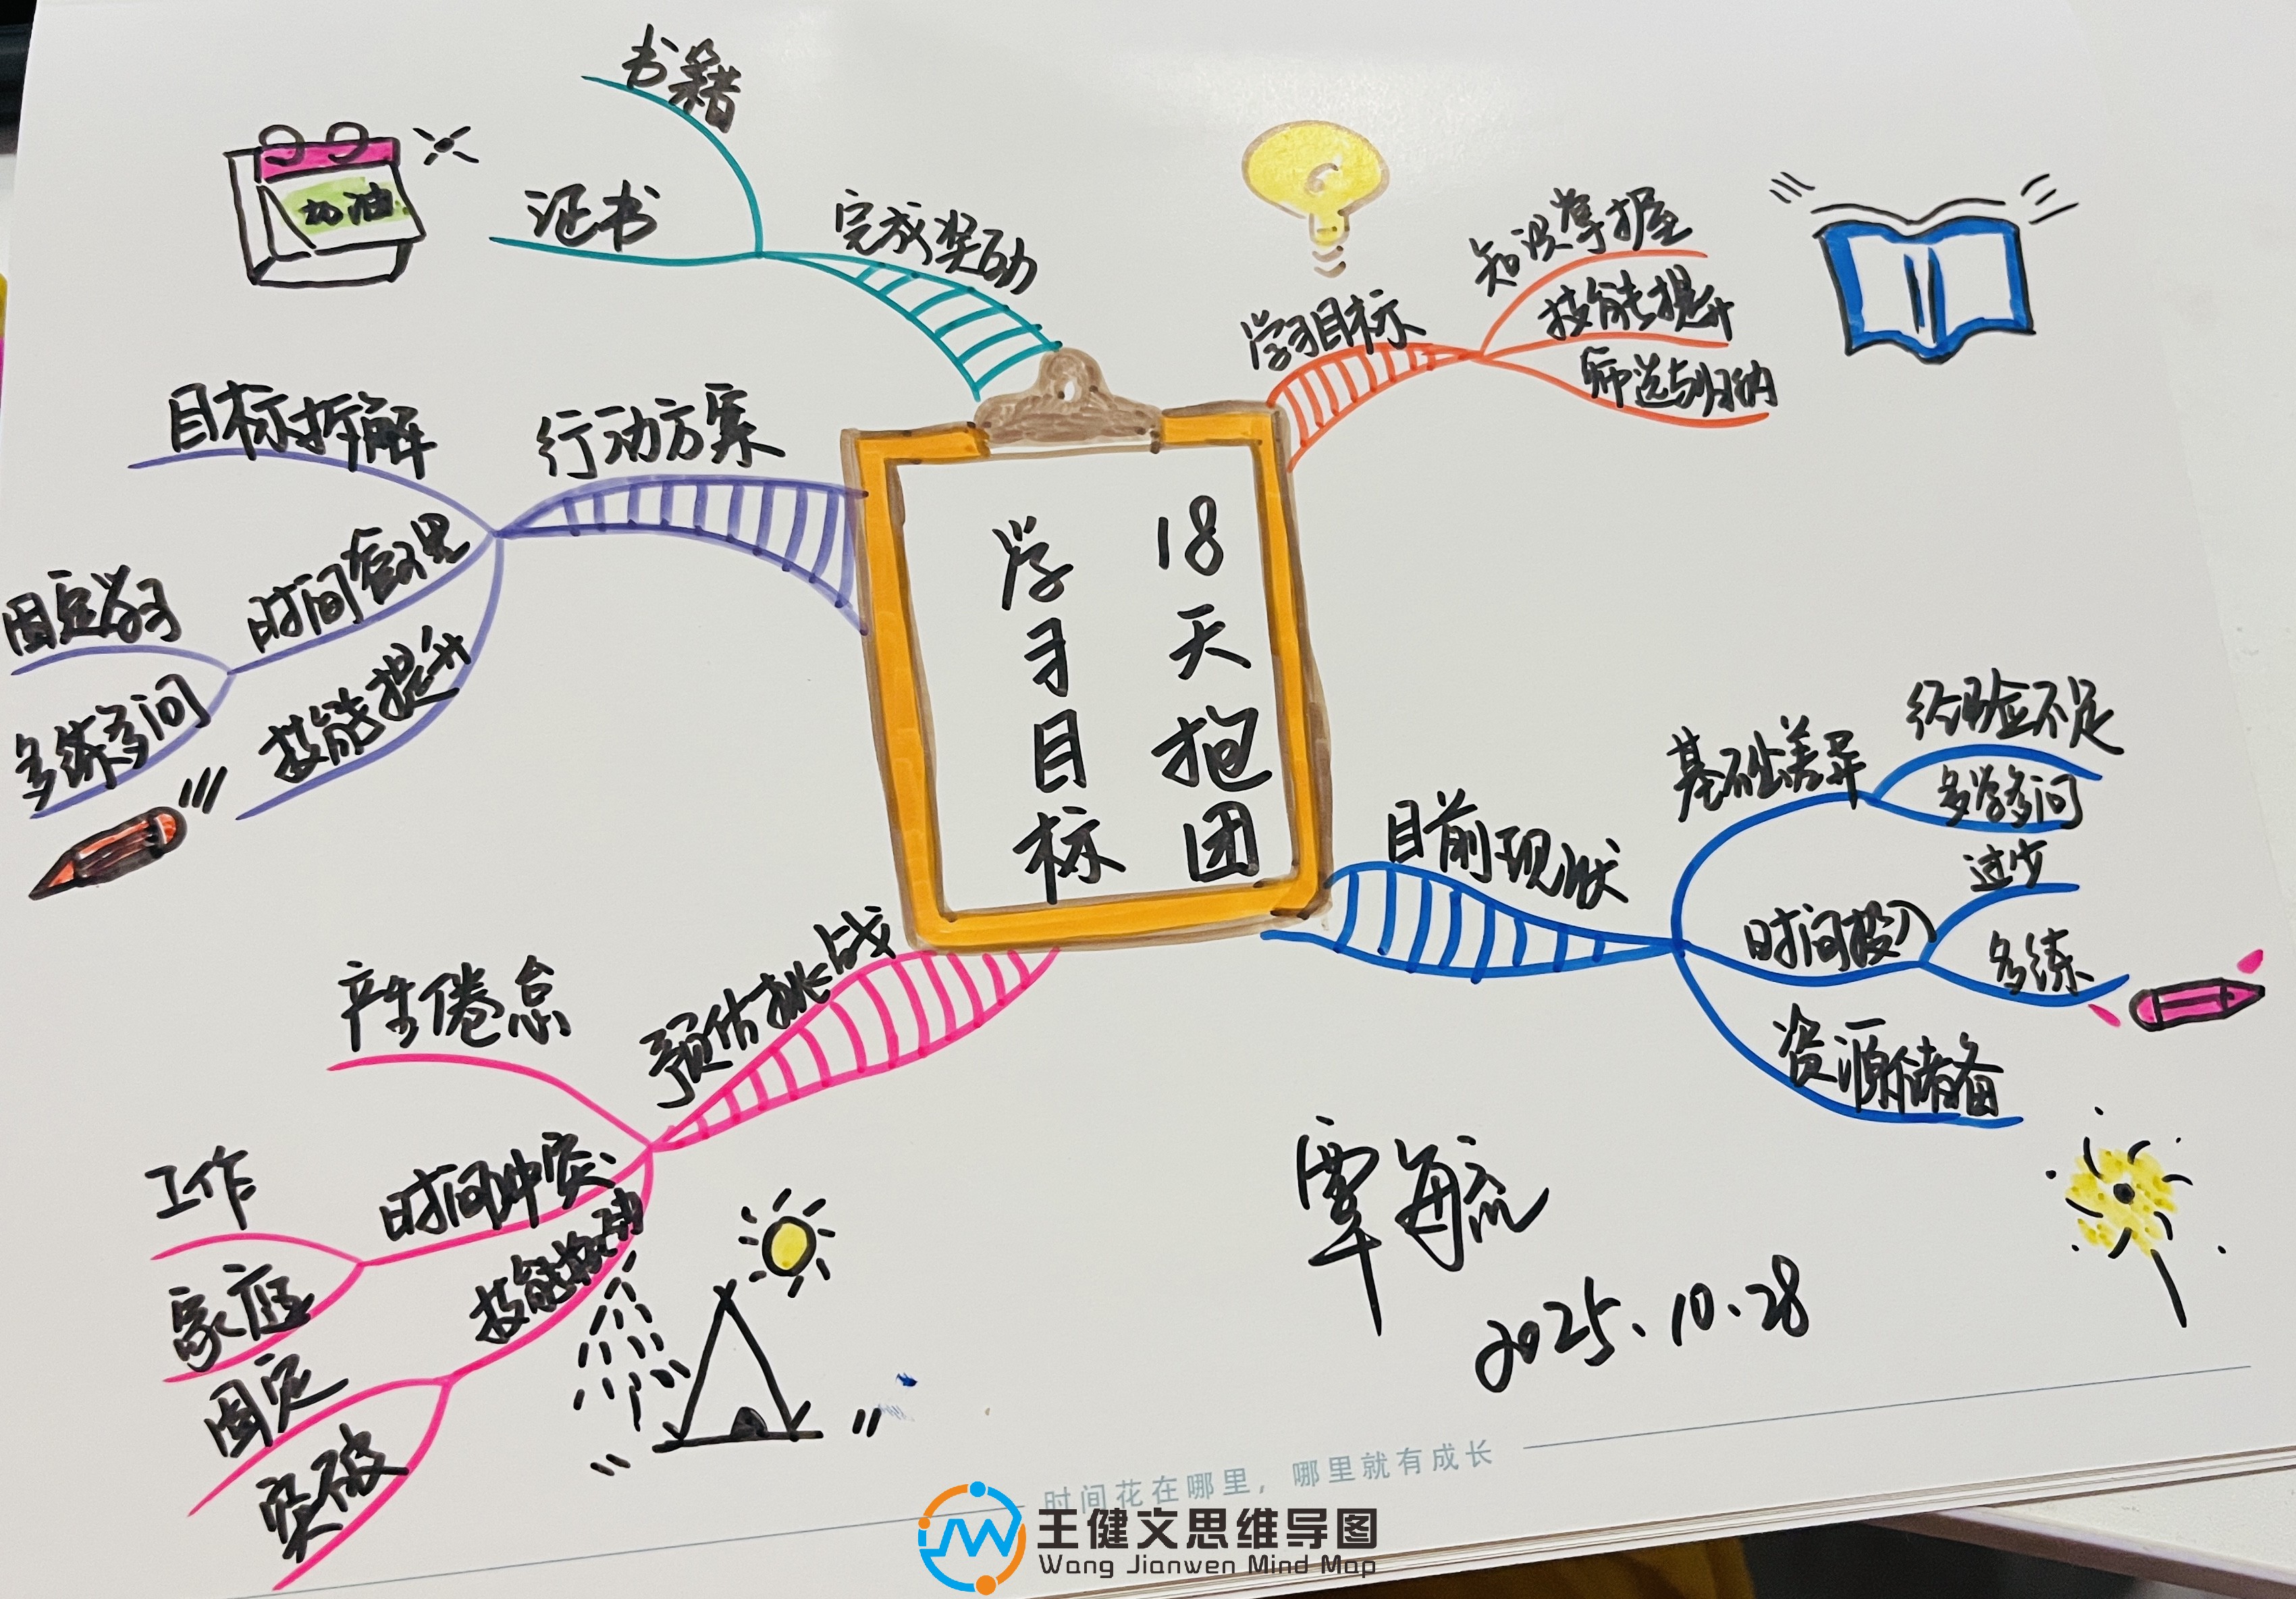 18天抱团
学习目标
学习目标
知识掌握
技能提升
筛选与归纳
目前现状
基础差异
经验不足
多学多问
时间投入
过少
多练
资源储备
预估挑战
产生倦怠
时间冲突
工作
家庭
技能
固定
突破
行动方案
目标拆解
时间管理
固定学习
多练多问
技能提升
完成奖励
书籍
证书
加油
覃航
2025.10.28
时间花在哪里，哪里就有成长
王健文思维导图
Wang Jianwen Mind Map